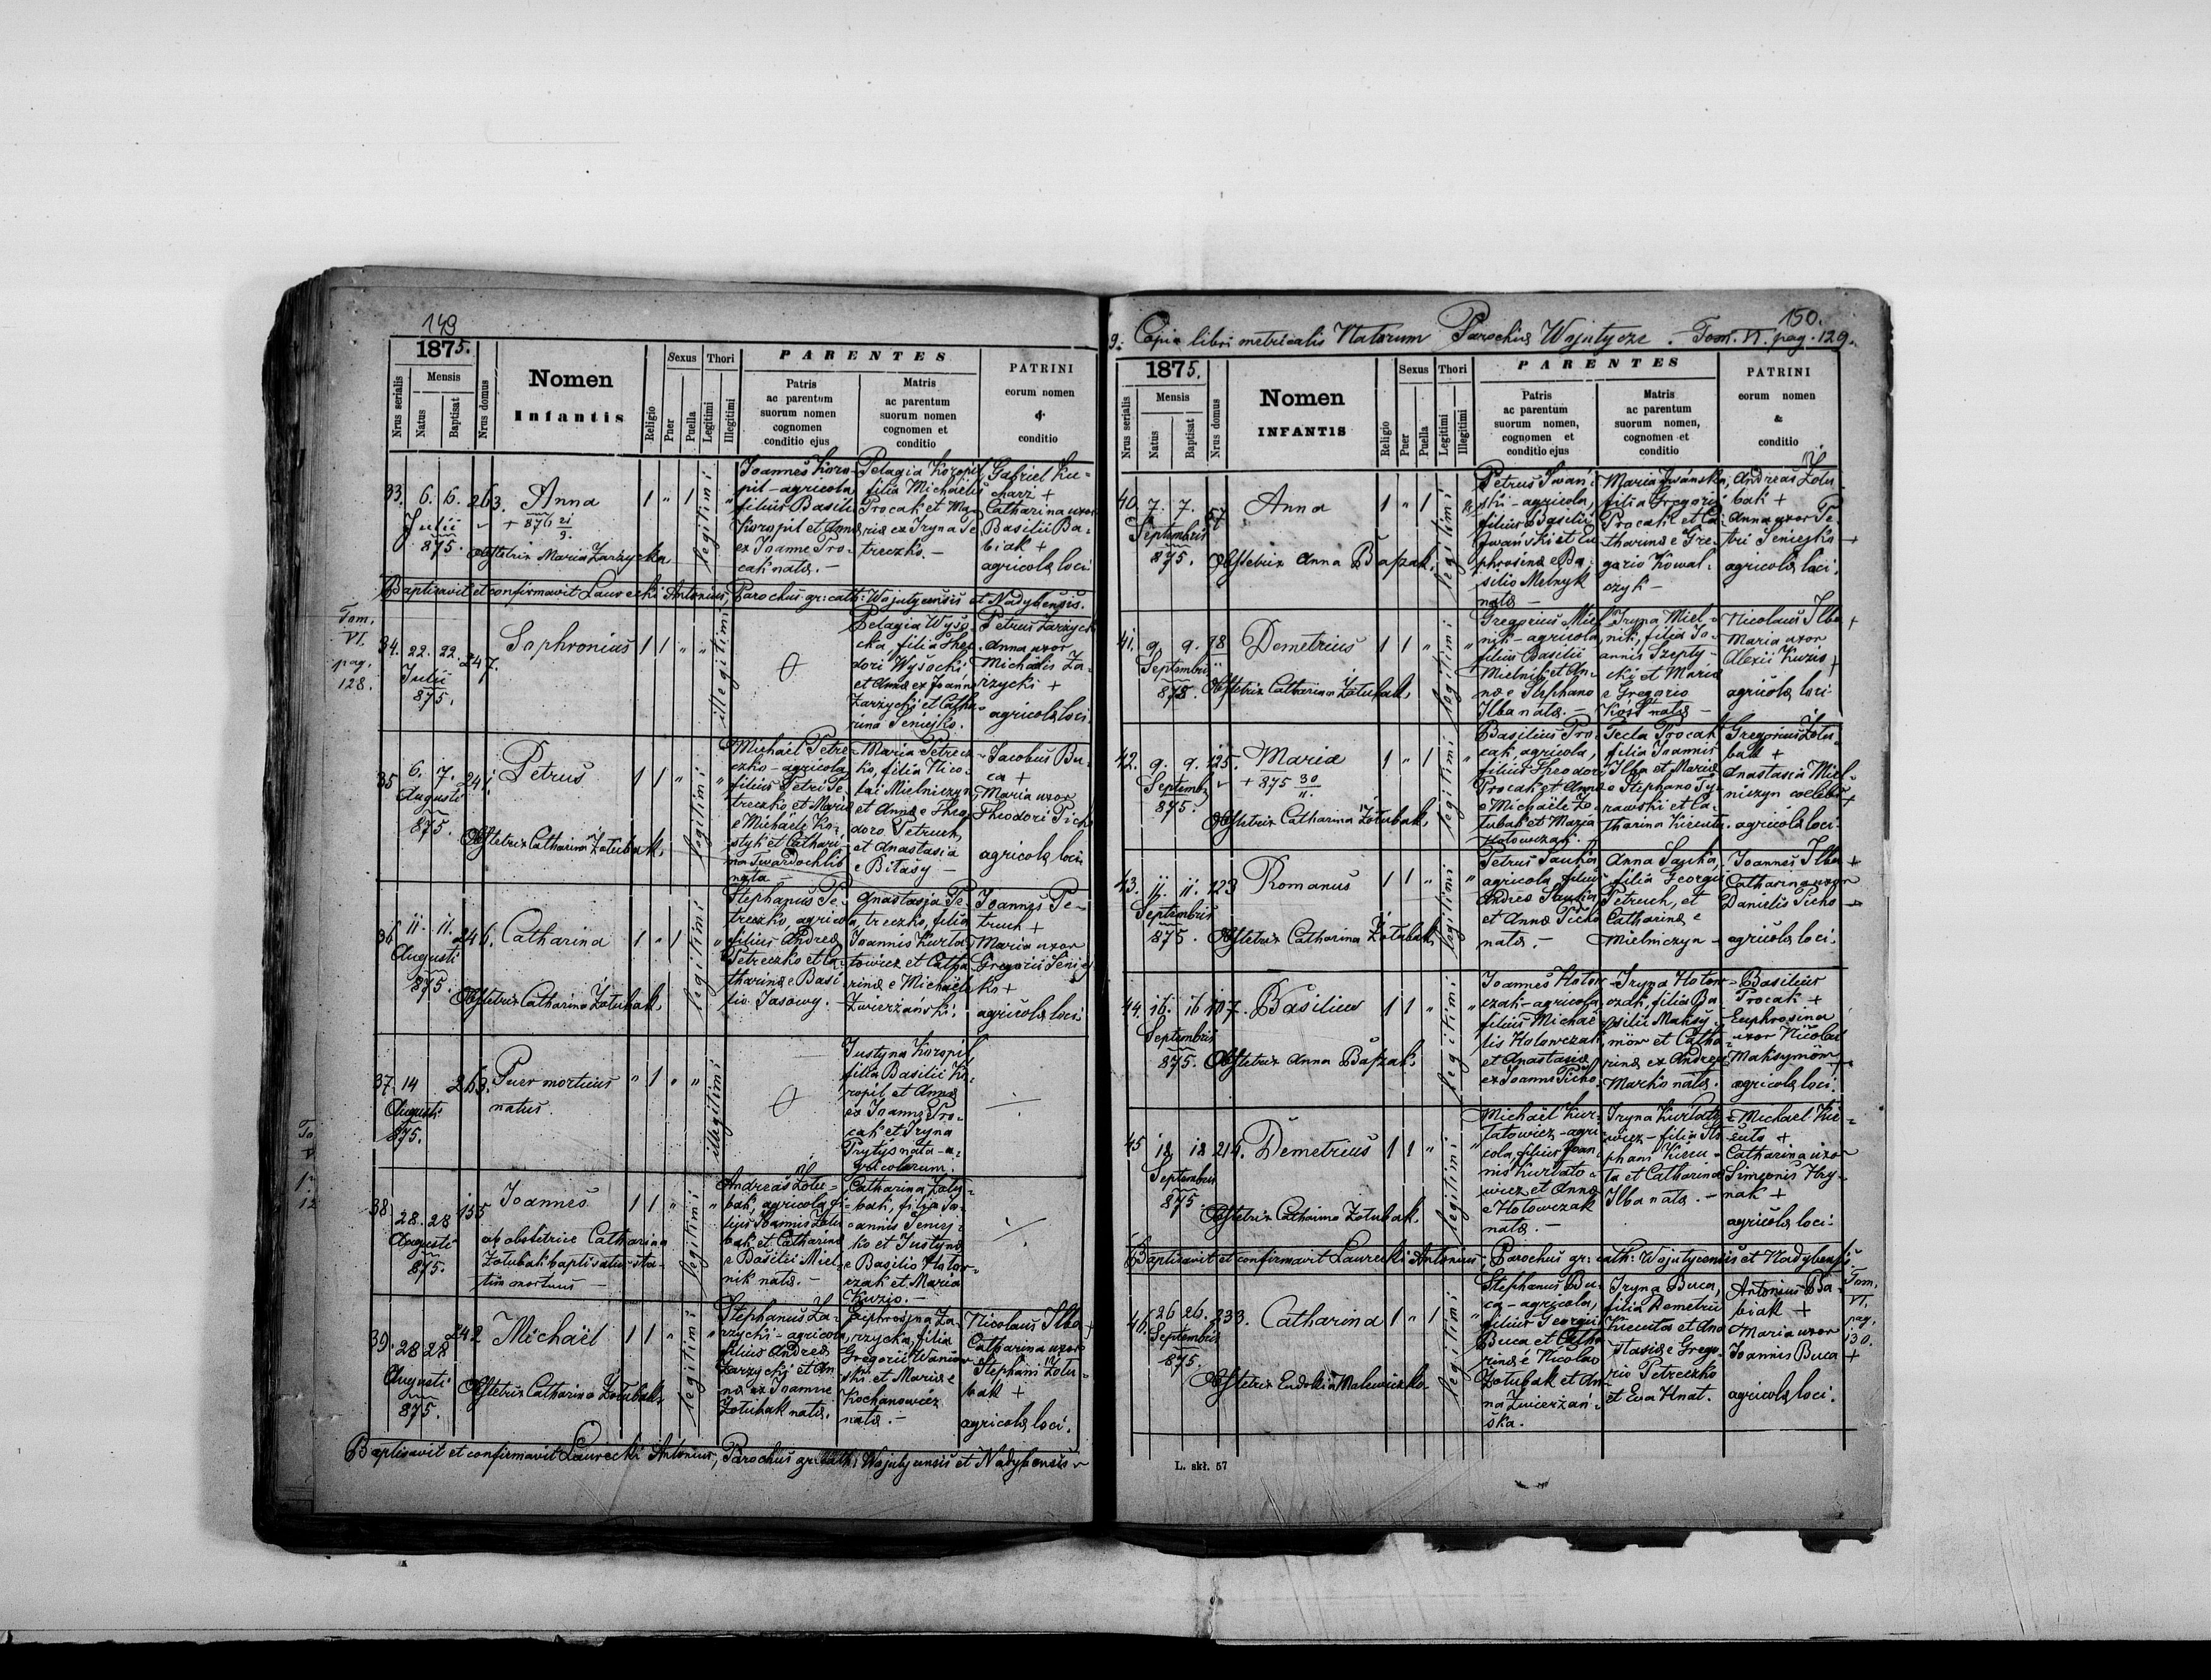 149
1875.
Nrus serialis
Mensis
Natus
Baptisat
Nrus domus
Nomen
Infantis
Religio
Sexus
Puer
Puella
Thori
Legitimi
Illegitimi
PARENTES
Patris
ac parentum
suorum nomen
cognomen
conditio ejus
Matris
ac parentum
suorum nomen
cognomen et
conditio
PATRINI
eorum nomen
&
conditio
33. 6. 6. 263. Anna 1 " 1 legitimi "
Julii + 876 21/9.
875. Obstetrix Maria Zarzycka
Joannes Koro-
pil - agricola
filius Basilii
Koropil et Annæ
ex Joanne Pro-
cak nata. -
Pelagia Koropil,
filia Michaelis
Procak et Ma-
riæ ex Iryna Pe-
treczko. -
Gabriel Ku-
charz +
Catharina uxor
Basilii Ba-
biak +
agricolæ loci
Baptisavit et confirmavit Laurecki Antonius, Parochus gr: cath: Wojutycensis et Nadybensis.
Tom.
VI.
pag.
128.
34. 22. 22. 247. Sophronius 1 1 " " illegitimi
Julii
875.
Pelagia Wyso-
cka, filia Theo-
dori Wysocki
et Annæ ex Joanne
Zarzycki et Catha-
rina Seniejko.
Petrus Zarzycki
Anna uxor
Michaelis Za-
rzycki +
agricolæ loci
35 6. 7. 241. Petrus 1 1 " legitimi "
Augusti
875.
Obstetrix Catharina Żołubak.
Michaël Petre-
czko - agricola
filius Petri Pe-
treczko et Mariæ
e Michaële Ko-
styk et Cathari-
na Twardochlib
nata -
Maria Petrecz-
ko, filia Nico-
lai Mielniczyn
et Annæ e Theo-
doro Petruch,
et Anastasia
e Bitasy -
Jacobus Bu-
ca +
Maria uxor
Theodori Ticho
agricolæ loci
36 11. 11. 246. Catharina 1 " 1 legitimi "
Augusti
875. Obstetrix Catharina Żołubak.
Stephanus Pe-
treczko, agricola,
filius Andreæ
Petreczko et Ca-
tharinæ e Basi-
lio Jasowy. -
Anastasia Pe-
treczko, filia
Joannis Kurla-
towicz et Catha-
rinæ e Michaële
Zwierzański.
Joannes Pe-
truch +
Maria uxor
Gregorii Seniej-
ko +
agricolæ loci
37. 14 263. Puer mortuus " 1 " " illegitimi
natus.
Augusti
875.
Justyna Koropil
filia Basilii Ko-
ropil et Annæ
ex Joanne Pro-
cak et Iryna
Prytys nata - a-
gricolarum.
38 28. 28 155 Joannes 1 1 " legitimi "
Augusti
875.
ab obstetrice Catharina
Żołubak baptisatus sta-
tim mortuus -
Andreas Żołu-
bak, agricola, fi-
lius Joannis Żołu-
bak et Catharinæ
e Basilii Miel-
nik nata. -
Catharina Żołu-
bak, filia Jo-
annis Seniej-
ko et Justynæ
e Basilio Hołow-
czak et Maria
Kuzio. -
39. 28 28 242 Michaël 1 1 " legitimi "
Augusti
875. Obstetrix Catharina Żołubak.
Stephanus Za-
rzycki - agricola,
filius Andreæ
Zarzycki et An-
næ ex Joanne
Żołubak nata.
Euphrosyna Za-
rzycka, filia
Gregorii Waniow-
ski et Mariæ e
Kochanowicz
nata. -
Nicolaus Ilba +
Catharina uxor
Stephani Żołu-
bak +
agricolæ loci.
Baptisavit et confirmavit Laurecki Antonius, Parochus gr: cath: Wojutycensis et Nadybensis
150.
Copia libri metricalis Natorum Parochiæ Wojutycze. Tom. VI. pag. 129.
1875.
Nrus serialis
Mensis
Natus
Baptisat
Nrus domus
Nomen
INFANTIS
Religio
Sexus
Puer
Puella
Thori
Legitimi
Illegitimi
PARENTES
Patris
ac parentum
suorum nomen,
cognomen et
conditio ejus
Matris
ac parentum
suorum nomen,
cognomen et
conditio
PATRINI
eorum nomen
&
conditio
40. 7. 7. 57 Anna 1 " 1 legitimi
Septembris
875. Obstetrix Anna Bapak.
Petrus Iwań-
ski - agricola,
filius Basilii
Iwański et Eu-
phrosinæ e Ba-
silio Melnyk
nata -
Maria Iwańska,
filia Gregorii
Procak et Ca-
tharinæ e Gre-
gorio Kowal-
czyk -
Andreas Żołu-
bak +
Anna uxor Pe-
tri Seniejko +
agricolæ loci.
41. 9. 9. 98 Demetrius 1 1 " legitimi "
Septembris
875. Obstetrix Catharina Żołubak.
Gregorius Miel-
nik - agricola
filius Basilii
Mielnik, et An-
næ e Stephano
Ilba nata. -
Iryna Miel-
nik, filia Jo-
annis Szepty-
cki et Maria
e Gregorio
Kość nata -
Nicolaus Ilba +
Maria uxor
Alexii Kuzio +
agricolæ loci
42. 9. 9. 125. Maria 1 " 1 legitimi "
Septemb. + 875 30/11.
875.
Obstetrix Catharina Żołubak.
Basilius Pro-
cak, agricola,
filius Theodori
Procak et Annæ
e Michaële Żo-
łubak et Maria
Hołowczak.
Tecla Procak
filia Joannis
Ilba et Mariæ
e Stephano Ty-
rawski et Ca-
tharina Kiecuta.
Gregorius Żołu-
bak +
Anastasia Miel-
niczyn cœlebs +
agricolæ loci
43. 11. 11. 123 Romanus 1 1 " legitimi "
Septembris
875. Obstetrix Catharina Żołubak
Petrus Sauka
agricola, filius
Andreæ Sauka
et Annæ Ticho
nata. -
Anna Sauka,
filia Georgii
Petruch, et
Catharinæ e
Mielniczyn -
Joannes Ilba +
Catharina uxor
Danielis Ticho +
agricolæ loci.
44. 16. 16 107. Basilius 1 1 " legitimi "
Septembris
875. Obstetrix Anna Bapak.
Joannes Hołow-
czak - agricola,
filius Michaë-
lis Hołowczak
et Anastasiæ
ex Joannis Ticho
Iryna Hołow-
czak, filia Ba-
silii Maksy-
mów et Catha-
rinæ ex Andrea
Marko nata.
Basilius
Procak +
Euphrosina
uxor Nicolai
Maksymów +
agricolæ loci.
45 18 18 214. Demetrius 1 1 " legitimi "
Septembris
875
Obstetrix Catharina Żołubak.
Michaël Kur-
łatowicz - agri-
cola, filius Joan-
nis Kurłato-
wicz et Annæ
e Hołowczak
nata. -
Iryna Kurłato-
wicz - filia Ste-
phani Kiecu-
ta et Catharinæ
Ilba nata. -
Michaël Kie-
cuta +
Catharina uxor
Simeonis Hry-
nak +
agricolæ loci.
Baptisavit et confirmavit Laurecki Antonius, Parochus gr: cath: Wojutycensis et Nadybensis.
Tom.
VI.
pag.
130.
46. 26 26. 233. Catharina 1 " 1 legitimi
Septembris
875.
Obstetrix Eudokia Malewiczko
Stephanus Bu-
ca - agricola,
filius Georgii
Buca et Catha-
rinæ e Nicolao
Żołubak et An-
na Zwierzań-
ska.
Iryna Buca,
filia Demetrii
Kiecuta et Ana-
stasiæ e Grego-
rio Petreczko
et Eva Hnat.
Antonius Ba-
biak +
Maria uxor
Joannis Buca +
agricolæ loci.
L. skł. 57